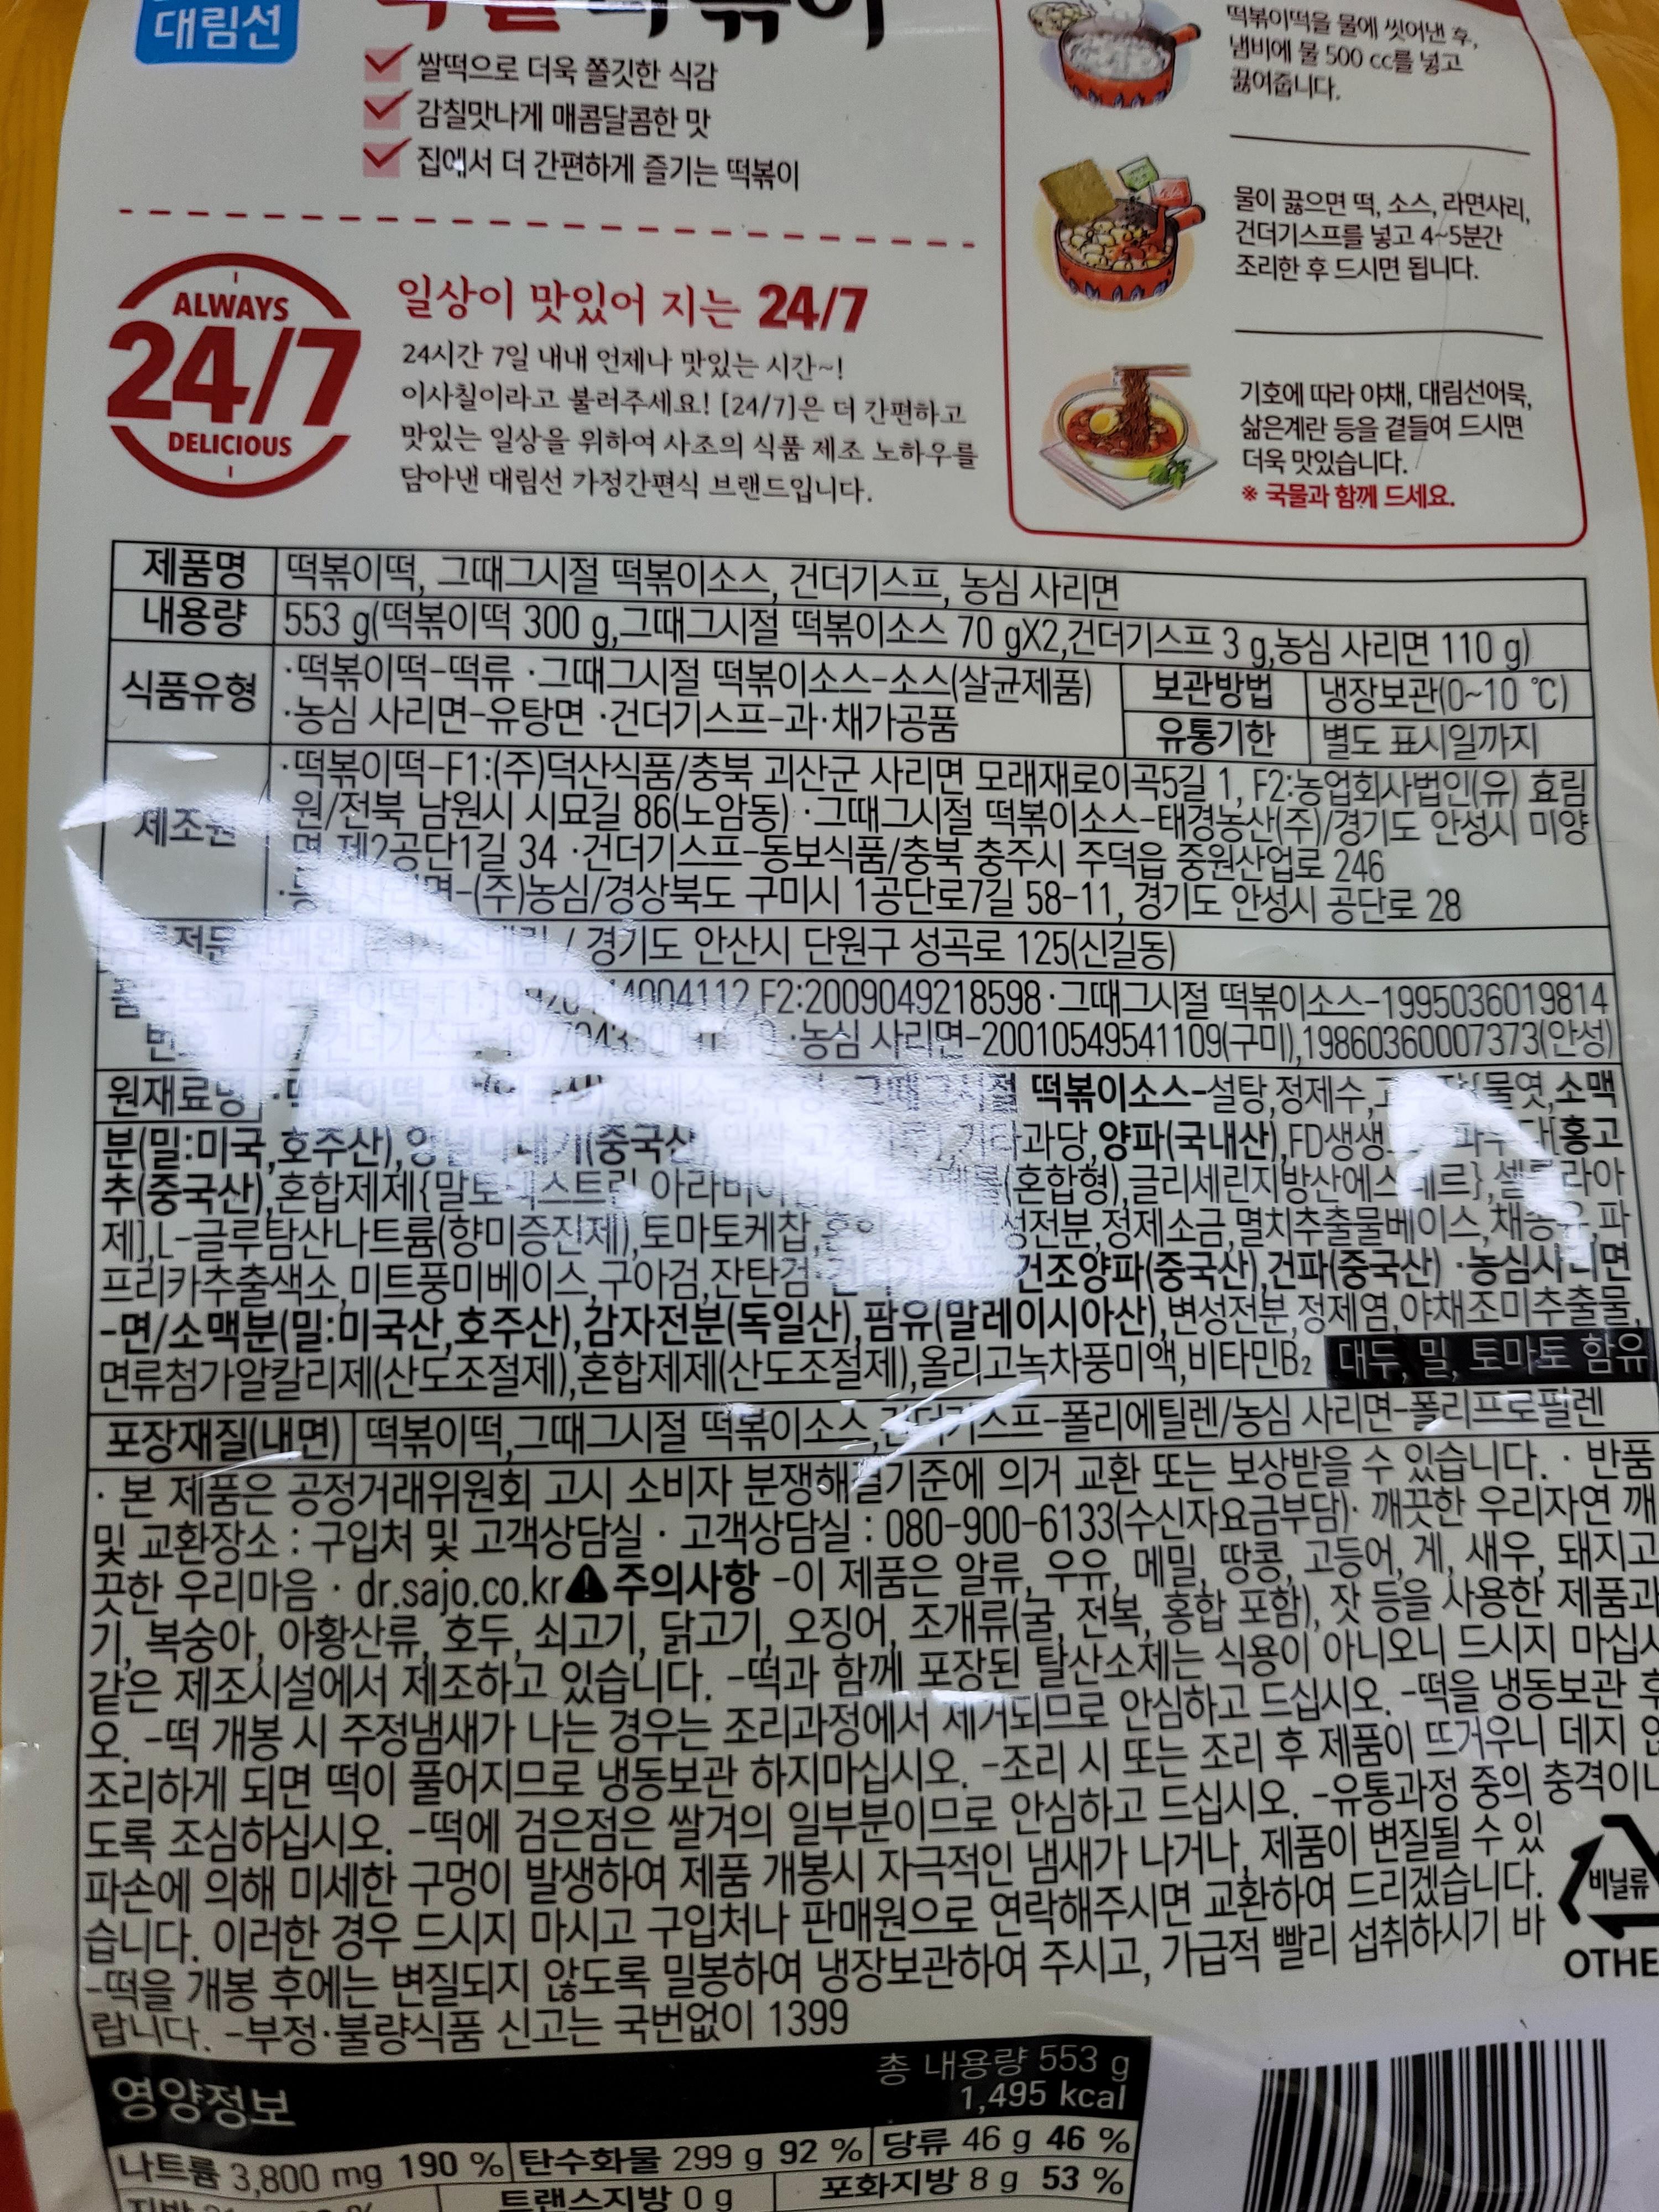 대림선
떡볶이
쌀떡으로 더욱 쫄깃한 식감
감칠맛나게 매콤달콤한 맛
집에서 더 간편하게 즐기는 떡볶이
떡볶이떡을 물에 씻어낸 후,
냄비에 물 500 cc를 넣고
끓여줍니다.
물이 끓으면 떡, 소스, 라면사리,
건더기스프를 넣고 4~5분간
조리한 후 드시면 됩니다.
기호에 따라 야채, 대림선어묵,
삶은계란 등을 곁들여 드시면
더욱 맛있습니다.
※ 국물과 함께 드세요.
ALWAYS
24/7
DELICIOUS
일상이 맛있어 지는 24/7
24시간 7일 내내 언제나 맛있는 시간~!
이사칠이라고 불러주세요! [24/7]은 더 간편하고
맛있는 일상을 위하여 사조의 식품 제조 노하우를
담아낸 대림선 가정간편식 브랜드입니다.
제품명 떡볶이떡, 그때그시절 떡볶이소스, 건더기스프, 농심 사리면
내용량 553 g(떡볶이떡 300 g,그때그시절 떡볶이소스 70 gX2,건더기스프 3 g,농심 사리면 110 g)
식품유형 ·떡볶이떡-떡류 ·그때그시절 떡볶이소스-소스(살균제품)
·농심 사리면-유탕면 ·건더기스프-과·채가공품
보관방법 냉장보관(0~10 ℃)
유통기한 별도 표시일까지
제조원 ·떡볶이떡-F1:(주)덕산식품/충북 괴산군 사리면 모래재로이곡5길 1, F2:농업회사법인(유) 효림
원/전북 남원시 시묘길 86(노암동) ·그때그시절 떡볶이소스-태경농산(주)/경기도 안성시 미양
면 제2공단1길 34 ·건더기스프-동보식품/충북 충주시 주덕읍 중원산업로 246
사리면-(주)농심/경상북도 구미시 1공단로7길 58-11, 경기도 안성시 공단로 28
/ 경기도 안산시 단원구 성곡로 125(신길동)
F2:2009049218598 ·그때그시절 떡볶이소스-1995036019814
번호 ·농심 사리면-20010549541109(구미),19860360007373(안성)
원재료명 떡볶이소스-설탕,정제수, 물엿,소맥
분(밀:미국,호주산), (중국산 과당,양파(국내산),FD생생 홍고
추(중국산),혼합제제{말토 (혼합형),글리세린지방산에스테르},셀룰라아
제],L-글루탐산나트륨(향미증진제),토마토케찹, 변성전분,정제소금,멸치추출물베이스, 파
프리카추출색소,미트풍미베이스,구아검,잔탄검 건조양파(중국산),건파(중국산) ·농심사리면
-면/소맥분(밀:미국산,호주산),감자전분(독일산),팜유(말레이시아산),변성전분,정제염,야채조미추출물,
면류첨가알칼리제(산도조절제),혼합제제(산도조절제),올리고녹차풍미액,비타민B2 대두, 밀, 토마토 함유
포장재질(내면) 떡볶이떡,그때그시절 떡볶이소스,건더기스프-폴리에틸렌/농심 사리면-폴리프로필렌
· 본 제품은 공정거래위원회 고시 소비자 분쟁해결기준에 의거 교환 또는 보상받을 수 있습니다. · 반품
및 교환장소 : 구입처 및 고객상담실 · 고객상담실 : 080-900-6133(수신자요금부담)· 깨끗한 우리자연 깨
끗한 우리마음 · dr.sajo.co.kr 주의사항 -이 제품은 알류, 우유, 메밀, 땅콩, 고등어, 게, 새우, 돼지고
기, 복숭아, 아황산류, 호두, 쇠고기, 닭고기, 오징어, 조개류(굴, 전복, 홍합 포함), 잣 등을 사용한 제품과
같은 제조시설에서 제조하고 있습니다. -떡과 함께 포장된 탈산소제는 식용이 아니오니 드시지 마십시
오. -떡 개봉 시 주정냄새가 나는 경우는 조리과정에서 제거되므로 안심하고 드십시오. -떡을 냉동보관 후
조리하게 되면 떡이 풀어지므로 냉동보관 하지마십시오. -조리 시 또는 조리 후 제품이 뜨거우니 데지 않
도록 조심하십시오. -떡에 검은점은 쌀겨의 일부분이므로 안심하고 드십시오. -유통과정 중의 충격이나
파손에 의해 미세한 구멍이 발생하여 제품 개봉시 자극적인 냄새가 나거나, 제품이 변질될 수 있
습니다. 이러한 경우 드시지 마시고 구입처나 판매원으로 연락해주시면 교환하여 드리겠습니다.
-떡을 개봉 후에는 변질되지 않도록 밀봉하여 냉장보관하여 주시고, 가급적 빨리 섭취하시기 바
랍니다. -부정·불량식품 신고는 국번없이 1399
비닐류
OTHE
영양정보
총 내용량 553 g
1,495 kcal
나트륨 3,800 mg 190 % 탄수화물 299 g 92 % 당류 46 g 46 %
트랜스지방 0 g 포화지방 8 g 53 %